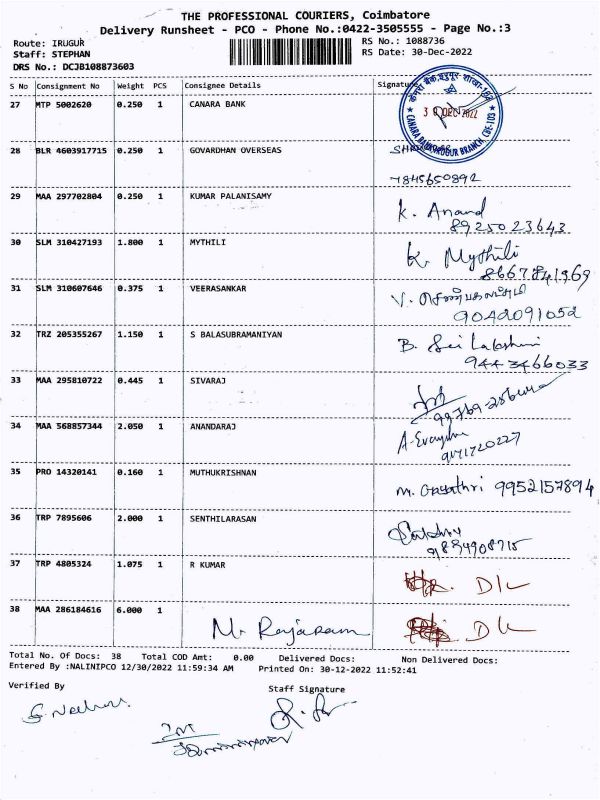 THE PROFESSIONAL COURIERS, Coimbatore
Delivery Runsheet - PCO - Phone No.:0422-3505555 - Page No.:3
Route: IRUGUR
RS No.: 1088736
Staff: STEPHAN
RS Date: 30-Dec-2022
DRS No.: DCJB108873603
S No Consignment No Weight PCS Consignee Details Signature
27 MTP 5002620 0.250 1 CANARA BANK
केनरा बैंक
30 DEC 2022
CANARA BANK, IRUGUR BRANCH, CBE-103
28 BLR 4603917715 0.250 1 GOVARDHAN OVERSEAS
7845650892
29 MAA 297702804 0.250 1 KUMAR PALANISAMY K. Anand
8925023643
30 SLM 310427193 1.800 1 MYTHILI K. Mythili
8667841969
31 SLM 310607646 0.375 1 VEERASANKAR V. செண்பகலட்சுமி
9042091052
32 TRZ 205355267 1.150 1 S BALASUBRAMANIYAN B. Sri Lakshmi
9443466033
33 MAA 295810722 0.445 1 SIVARAJ
34 MAA 568857344 2.050 1 ANANDARAJ
9171720227
35 PRO 14320141 0.160 1 MUTHUKRISHNAN M. Gayathri 9952157894
36 TRP 7895606 2.000 1 SENTHILARASAN
9894908715
37 TRP 4805324 1.075 1 R KUMAR D/L
38 MAA 286184616 6.000 1 M. Rajaram D/L
Total No. Of Docs: 38 Total COD Amt: 0.00 Delivered Docs: Non Delivered Docs:
Entered By :NALINIPCO 12/30/2022 11:59:34 AM Printed On: 30-12-2022 11:52:41
Verified By Staff Signature